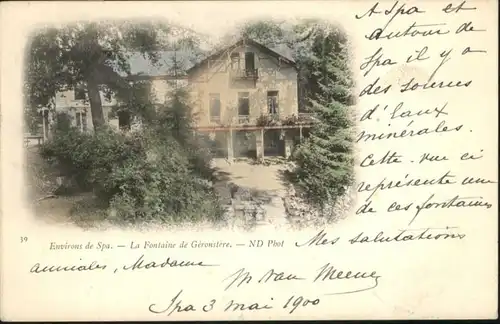 A Spa et
autour de
Spa il y a
des sources
d'eaux
minérales.
Cette vue ci
représente une
de ces fontaines
39 Environs de Spa. — La Fontaine de Géronstère. — ND Phot
Mes salutations
amicales, Madame
M van Meene
Spa 3 mai 1900